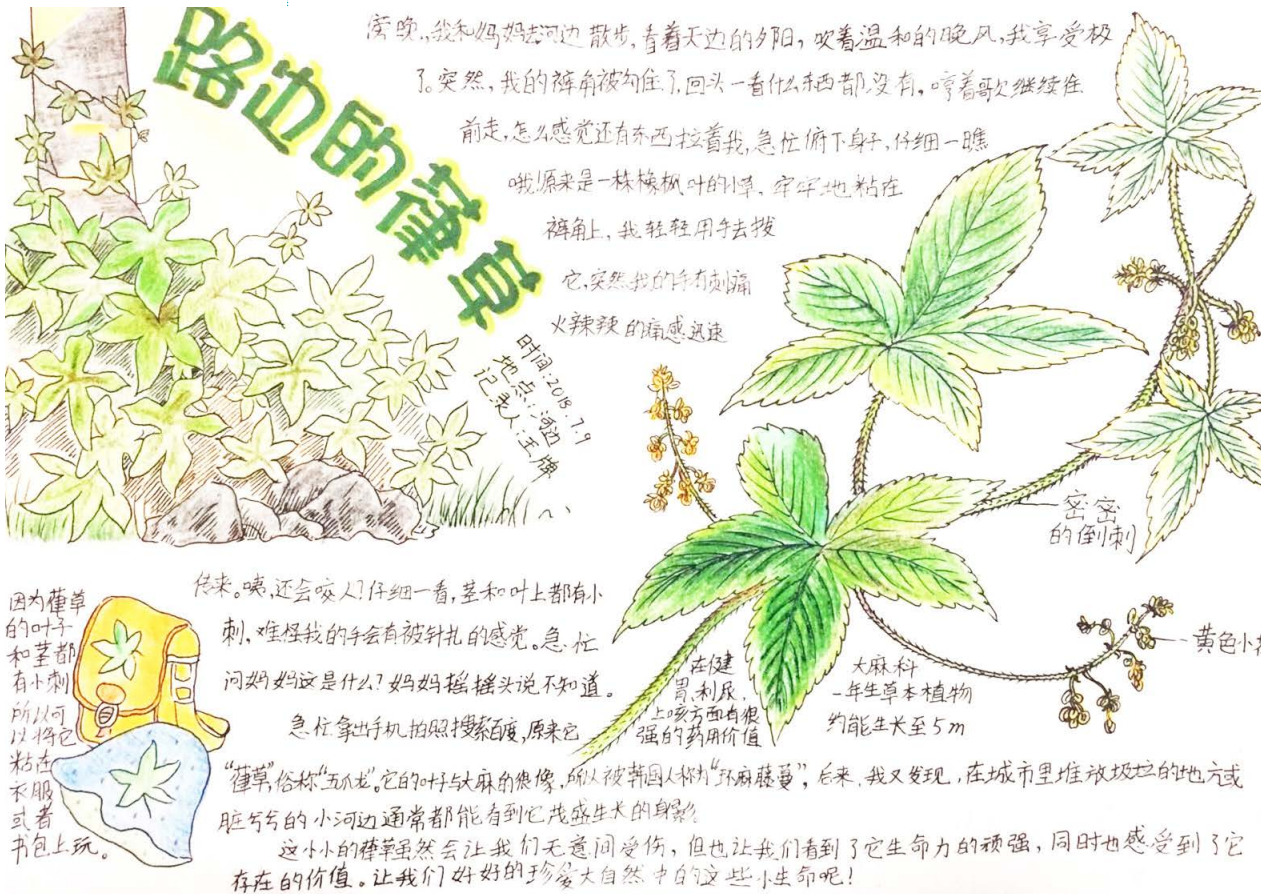 路边的葎草
时间:2018.7.9
地点:河边
记录人:王牌
傍晚,我和妈妈去河边散步,看着天边的夕阳,吹着温和的晚风,我享受极
了。突然,我的裤角被勾住了,回头一看什么东西都没有,哼着歌继续往
前走,怎么感觉还有东西拉着我,急忙俯下身子,仔细一瞧
哦!原来是一株橡枫叶的小草,牢牢地粘在
裤角上,我轻轻用手去拨
它,突然我的手有刺痛
火辣辣的痛感迅速
传来。咦,还会咬人!仔细一看,茎和叶上都有小
刺,难怪我的手会有被针扎的感觉。急忙
问妈妈这是什么?妈妈摇摇头说不知道。
急忙拿出手机拍照搜索百度,原来它
“葎草”,俗称“五爪龙”。它的叶子与大麻的很像,所以被韩国人称为“环麻藤蔓”,后来,我又发现,在城市里堆放圾垃的地方或
脏兮兮的小河边通常都能看到它茂盛生长的身影
这小小的葎草虽然会让我们无意间受伤,但也让我们看到了它生命力的顽强,同时也感受到了它
存在的价值。让我们好好的珍爱大自然中的这些小生命呢!
因为葎草
的叶子
和茎都
有小刺
所以可
以将它
粘在
衣服
或者
书包上玩。
密密
的倒刺
黄色小花
在健
胃,利尿,
止咳方面有很
强的药用价值
大麻科
一年生草本植物
约能生长至5m